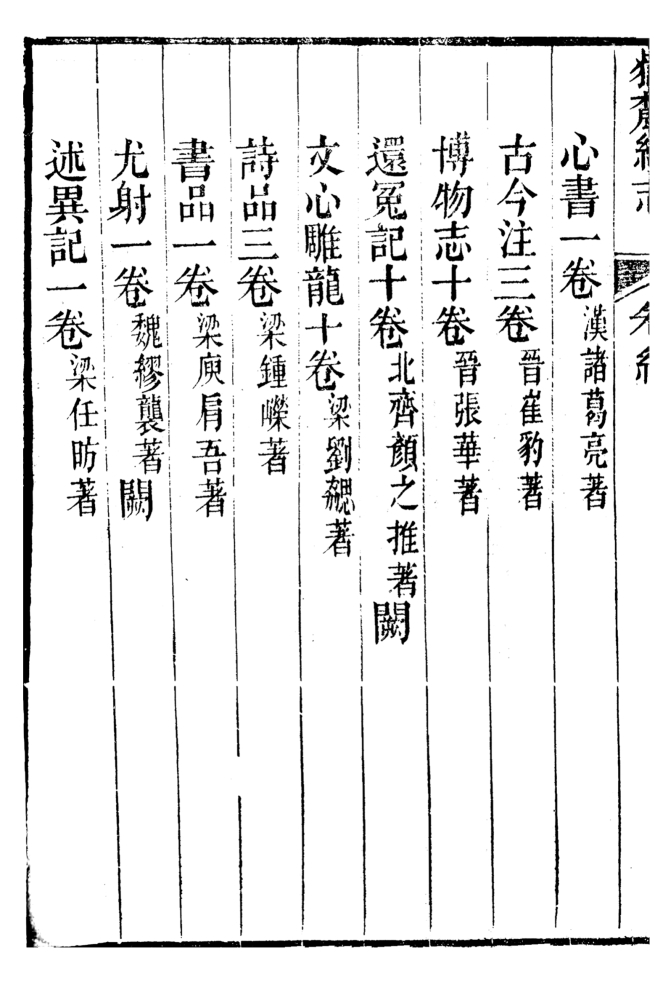 心書一卷漢諸葛亮著
古今注三卷晉崔豹著
博物志十卷晉張華著
還冤記十卷北齊顏之推著闕
文心雕龍十卷梁劉勰著
詩品三卷梁鍾嶸著
書品一卷梁庾肩吾著
尤射一卷魏繆襲著闕
述異記一卷梁任昉著